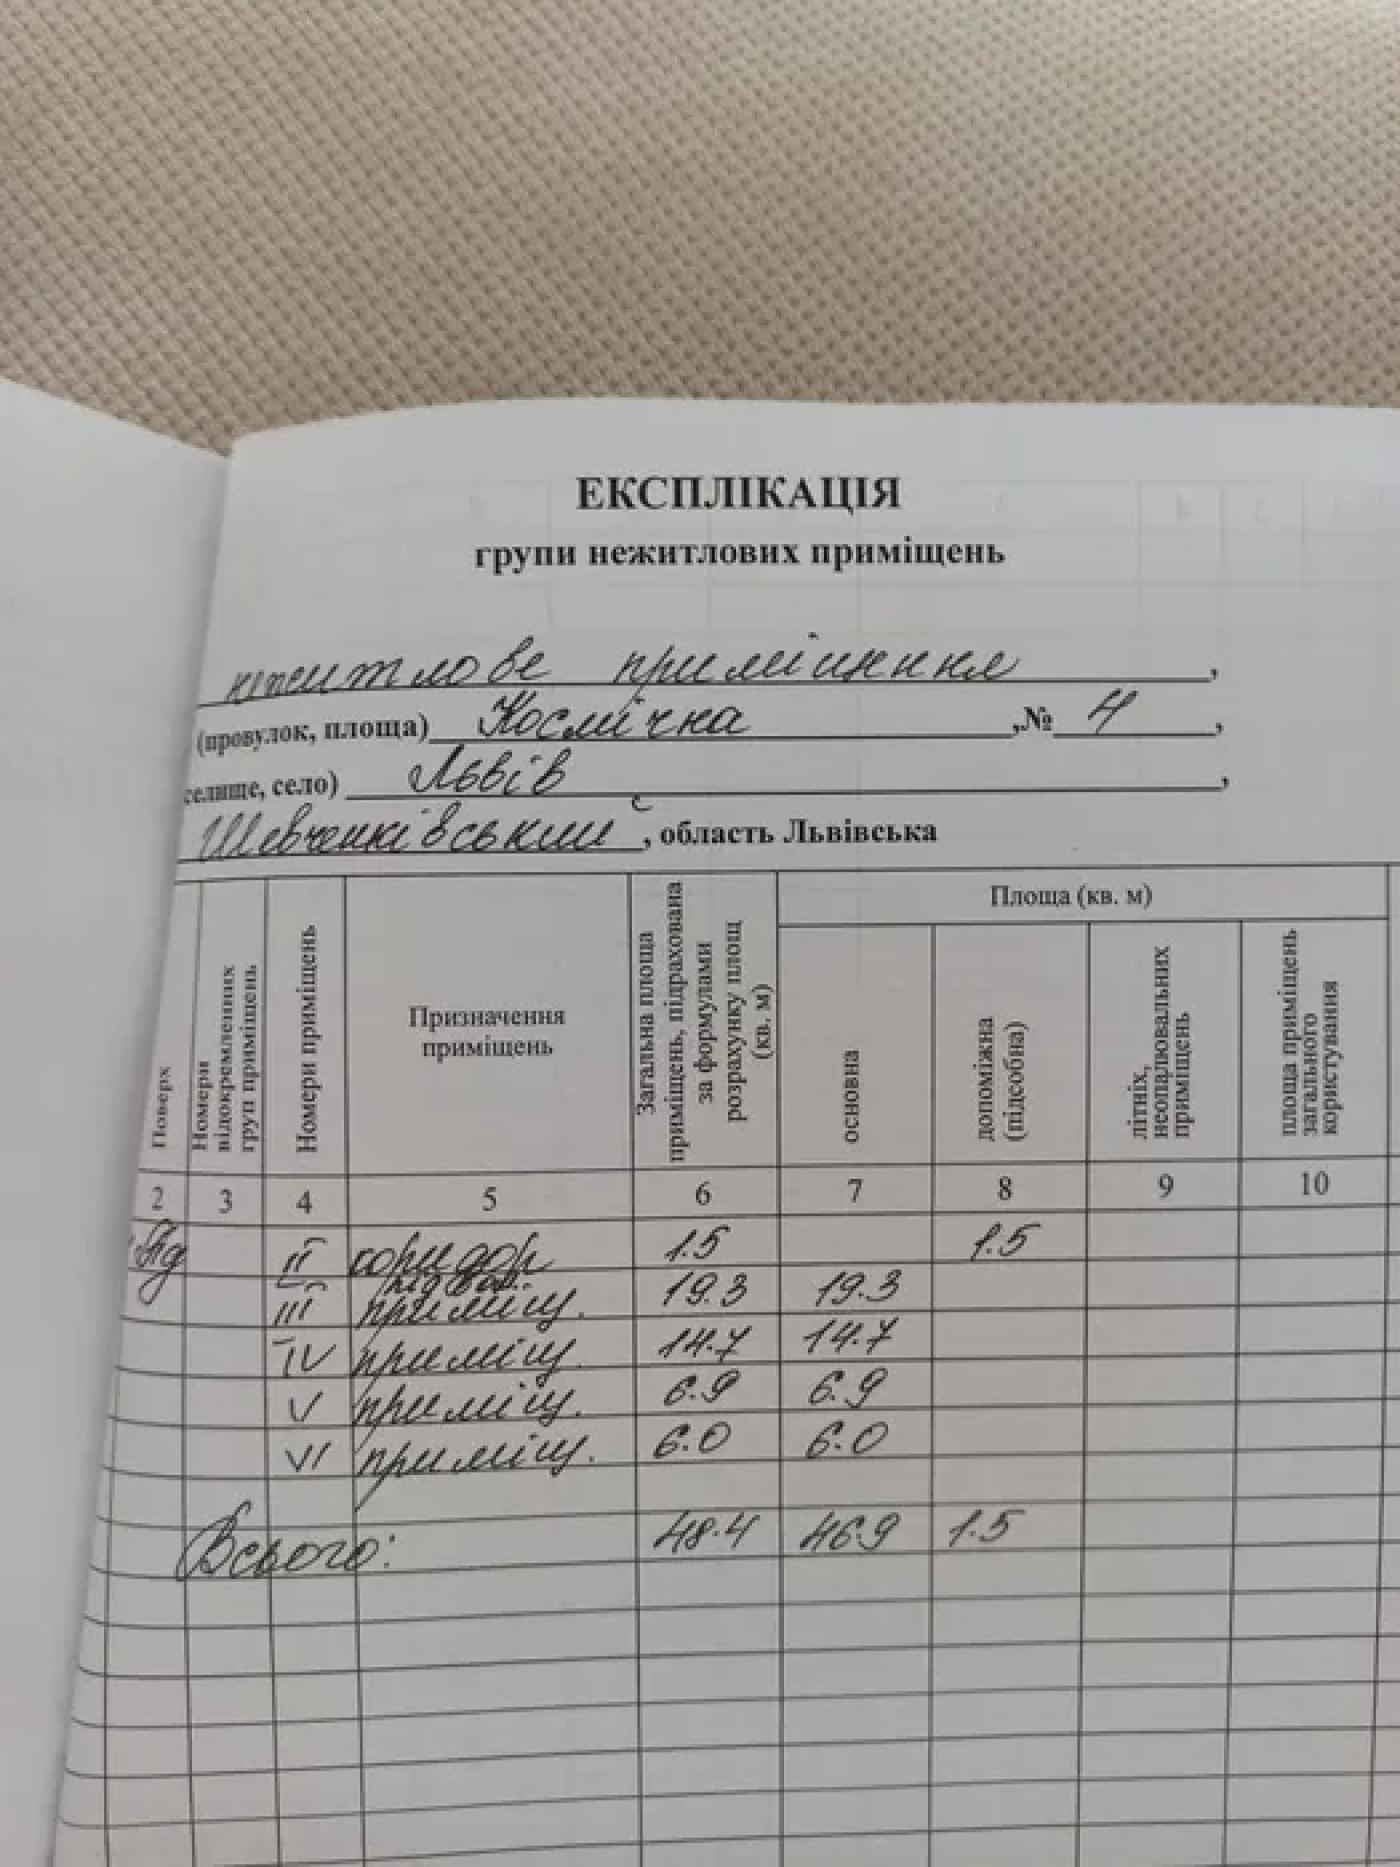 ЕКСПЛІКАЦІЯ
групи нежитлових приміщень
нежитлове приміщення ,
(провулок, площа) Космічна ,№ 4 ,
селище, село) Львів ,
Шевченківський , область Львівська
Поверх
Номери відокремленних груп приміщень
Номери приміщень
Призначення приміщень
Загальна площа приміщень, підрахована за формулами розрахунку площ (кв. м)
Площа (кв. м)
основна
допоміжна (підсобна)
літніх, неопалювальних приміщень
площа приміщень загального користування
2 3 4 5 6 7 8 9 10
Під II коридор 1.5 1.5
підвал.
III приміщ. 19.3 19.3
IV приміщ. 14.7 14.7
V приміщ. 6.9 6.9
VI приміщ. 6.0 6.0
Всього: 48.4 46.9 1.5